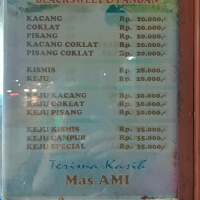 BLACKSWEET & PANDAN
KACANG Rp. 20.000,-
COKLAT Rp. 20.000,-
PISANG Rp. 20.000,-
KACANG COKLAT Rp. 20.000,-
PISANG COKLAT Rp. 20.000,-
KISMIS Rp. 28.000,-
KEJU Rp. 28.000,-
KEJU KACANG Rp. 30.000,-
KEJU COKLAT Rp. 30.000,-
KEJU PISANG Rp. 30.000,-
KEJU KISMIS Rp. 35.000,-
KEJU CAMPUR Rp. 35.000,-
KEJU SPECIAL Rp. 35.000,-
Terima Kasih
Mas AMI